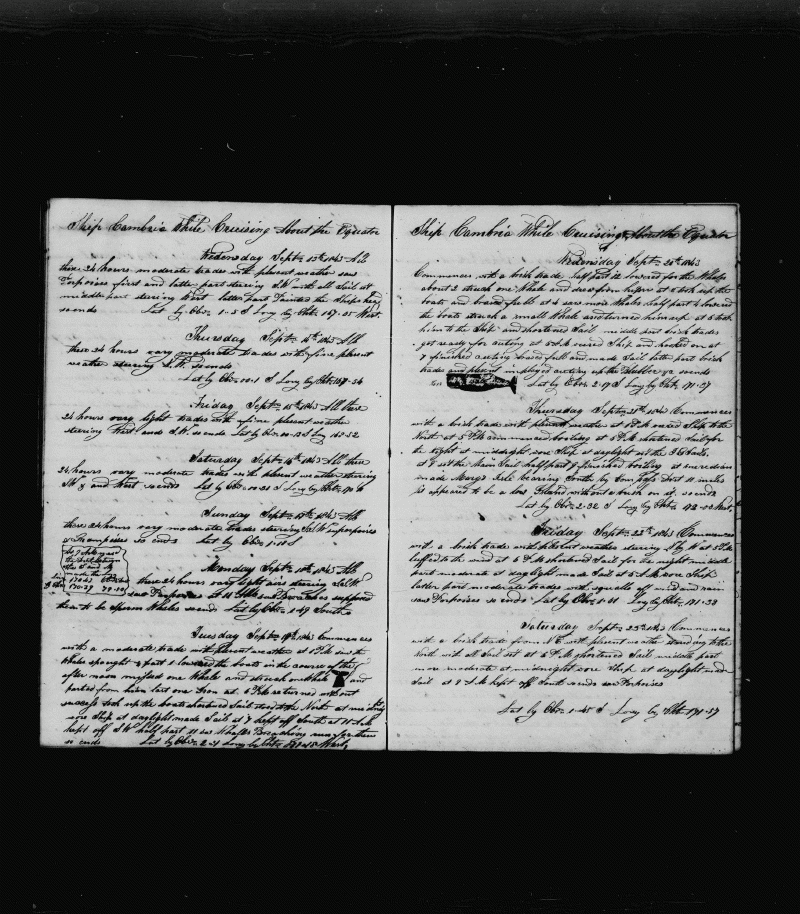 Ship Cambria While Cruising About the Equator
Wednesday Sept 13th 1843 All
these 24 hours moderate trades with plesent weather saw
Porpoises first and latter part stearing S.W. with all Sail at
middle part stearing West latter part Painted the Ships head
so ends Lat by Obs 1-5 S Long by Chr 167-05 West
Thursday Sept 14th 1843 All
these 24 hours vary moderate trades with fine plesent
weather stearing S.W. so ends
Lat by Obs 00-1 S Long by Chr 167-54
Friday Sept 15th 1843 All these
24 hours vary light trades with fine plesent weather
stearing West ends S.W. so ends Lat by Obs S Long 168-52
Saturday Sept 16th 1843 All these
24 hours vary moderate trades with plesent weather stearing
S.W. & and West so ends Lat by Obs 00-21 S Long by Chr 170 W
Sunday Sept 17th 1843 All
these 24 hours vary moderate trades stearing S.W. saw porpoises
& Grampuses so ends Lat by Obs 1-10 S
Monday Sept 18th 1843 All
these 24 hours vary light airs stearing S.W.
saw Porpoises at 11 supposed
them to be Sperm Whales so ends Lat by Obs 1-49 South
Tuesday Sept 19th 1843 Commences
with a moderate trade with plesent weather at 1 P.M. saw the
Whales spought & part 1 lowered the boats in the course of the
after noon myssed one Whale and struck one Whale and
parted from him last one Iron at 6 P.M. returned without
success took up the boats shortned Sail stood to the North at midnight
wore Ship at daylight made Sail at 7 kept off South at 11 A.M.
kept off S.W. half part 11 saw Whales Breaching ran for them
so ends Lat by Obs 2-4 Long by Chr West
Ship Cambria While Cruising About the Equator
Wednesday Sept 20th 1843
Commences with a brisk trade half part 12 lowered for the Whales
about 2 struck one Whale and drew from him at 3 took up the
boats and braced full at 4 saw more Whales half part 4 lowered
the boats struck a small Whale and turned him up at 5 took
him to the Ship and shortned Sail middle part brisk trades
got ready for cuting at 5 A.M. wored Ship and hooked on at
7 finished cuting braced full and made Sail latter part brisk
trades and plesent in ployed cuting up the Blubber so ends
Lat by Obs 2-19 S Long by Chr 171-37
Thursday Sept 21st 1843 Commences
with a brisk trade with plesent weather at 1 P.M. wored Ship to the
North at 5 P.M. commenced boiling at 6 P.M. shortned Sail for
the night at midnight wore Ship at daylight set the T G Sails
at 7 set the Main Sail half part 8 finished boiling at meredian
made Mary's Isle bearing South by Compass Dist 11 miles
it appeared to be a low Island without a bush on it so ends
Lat by Obs 2-32 S Long by Chr 172-00 West
Friday Sept 22d 1843 Commences
with a brisk trade with plesent weather stearing S by W at 3 P.M.
luffed to the wind at 6 P.M. shortned Sail for the night middle
part moderate at daylight made Sail at 5 A.M. wore Ship
latter part moderate trades with squalls off wind and rain
saw Porpoises so ends Lat by Obs Long by Chr 171-38
Saturday Sept 23d 1843 Commences
with a brisk trade from N.E. with plesent weather standing to the
North with all Sail set at 6 P.M. shortned Sail middle part
more moderate at midnight wore Ship at daylight made
Sail at 8 A.M. kept off South so ends saw Porpoises
Lat by Obs 1-45 S Long by Chr 171-37